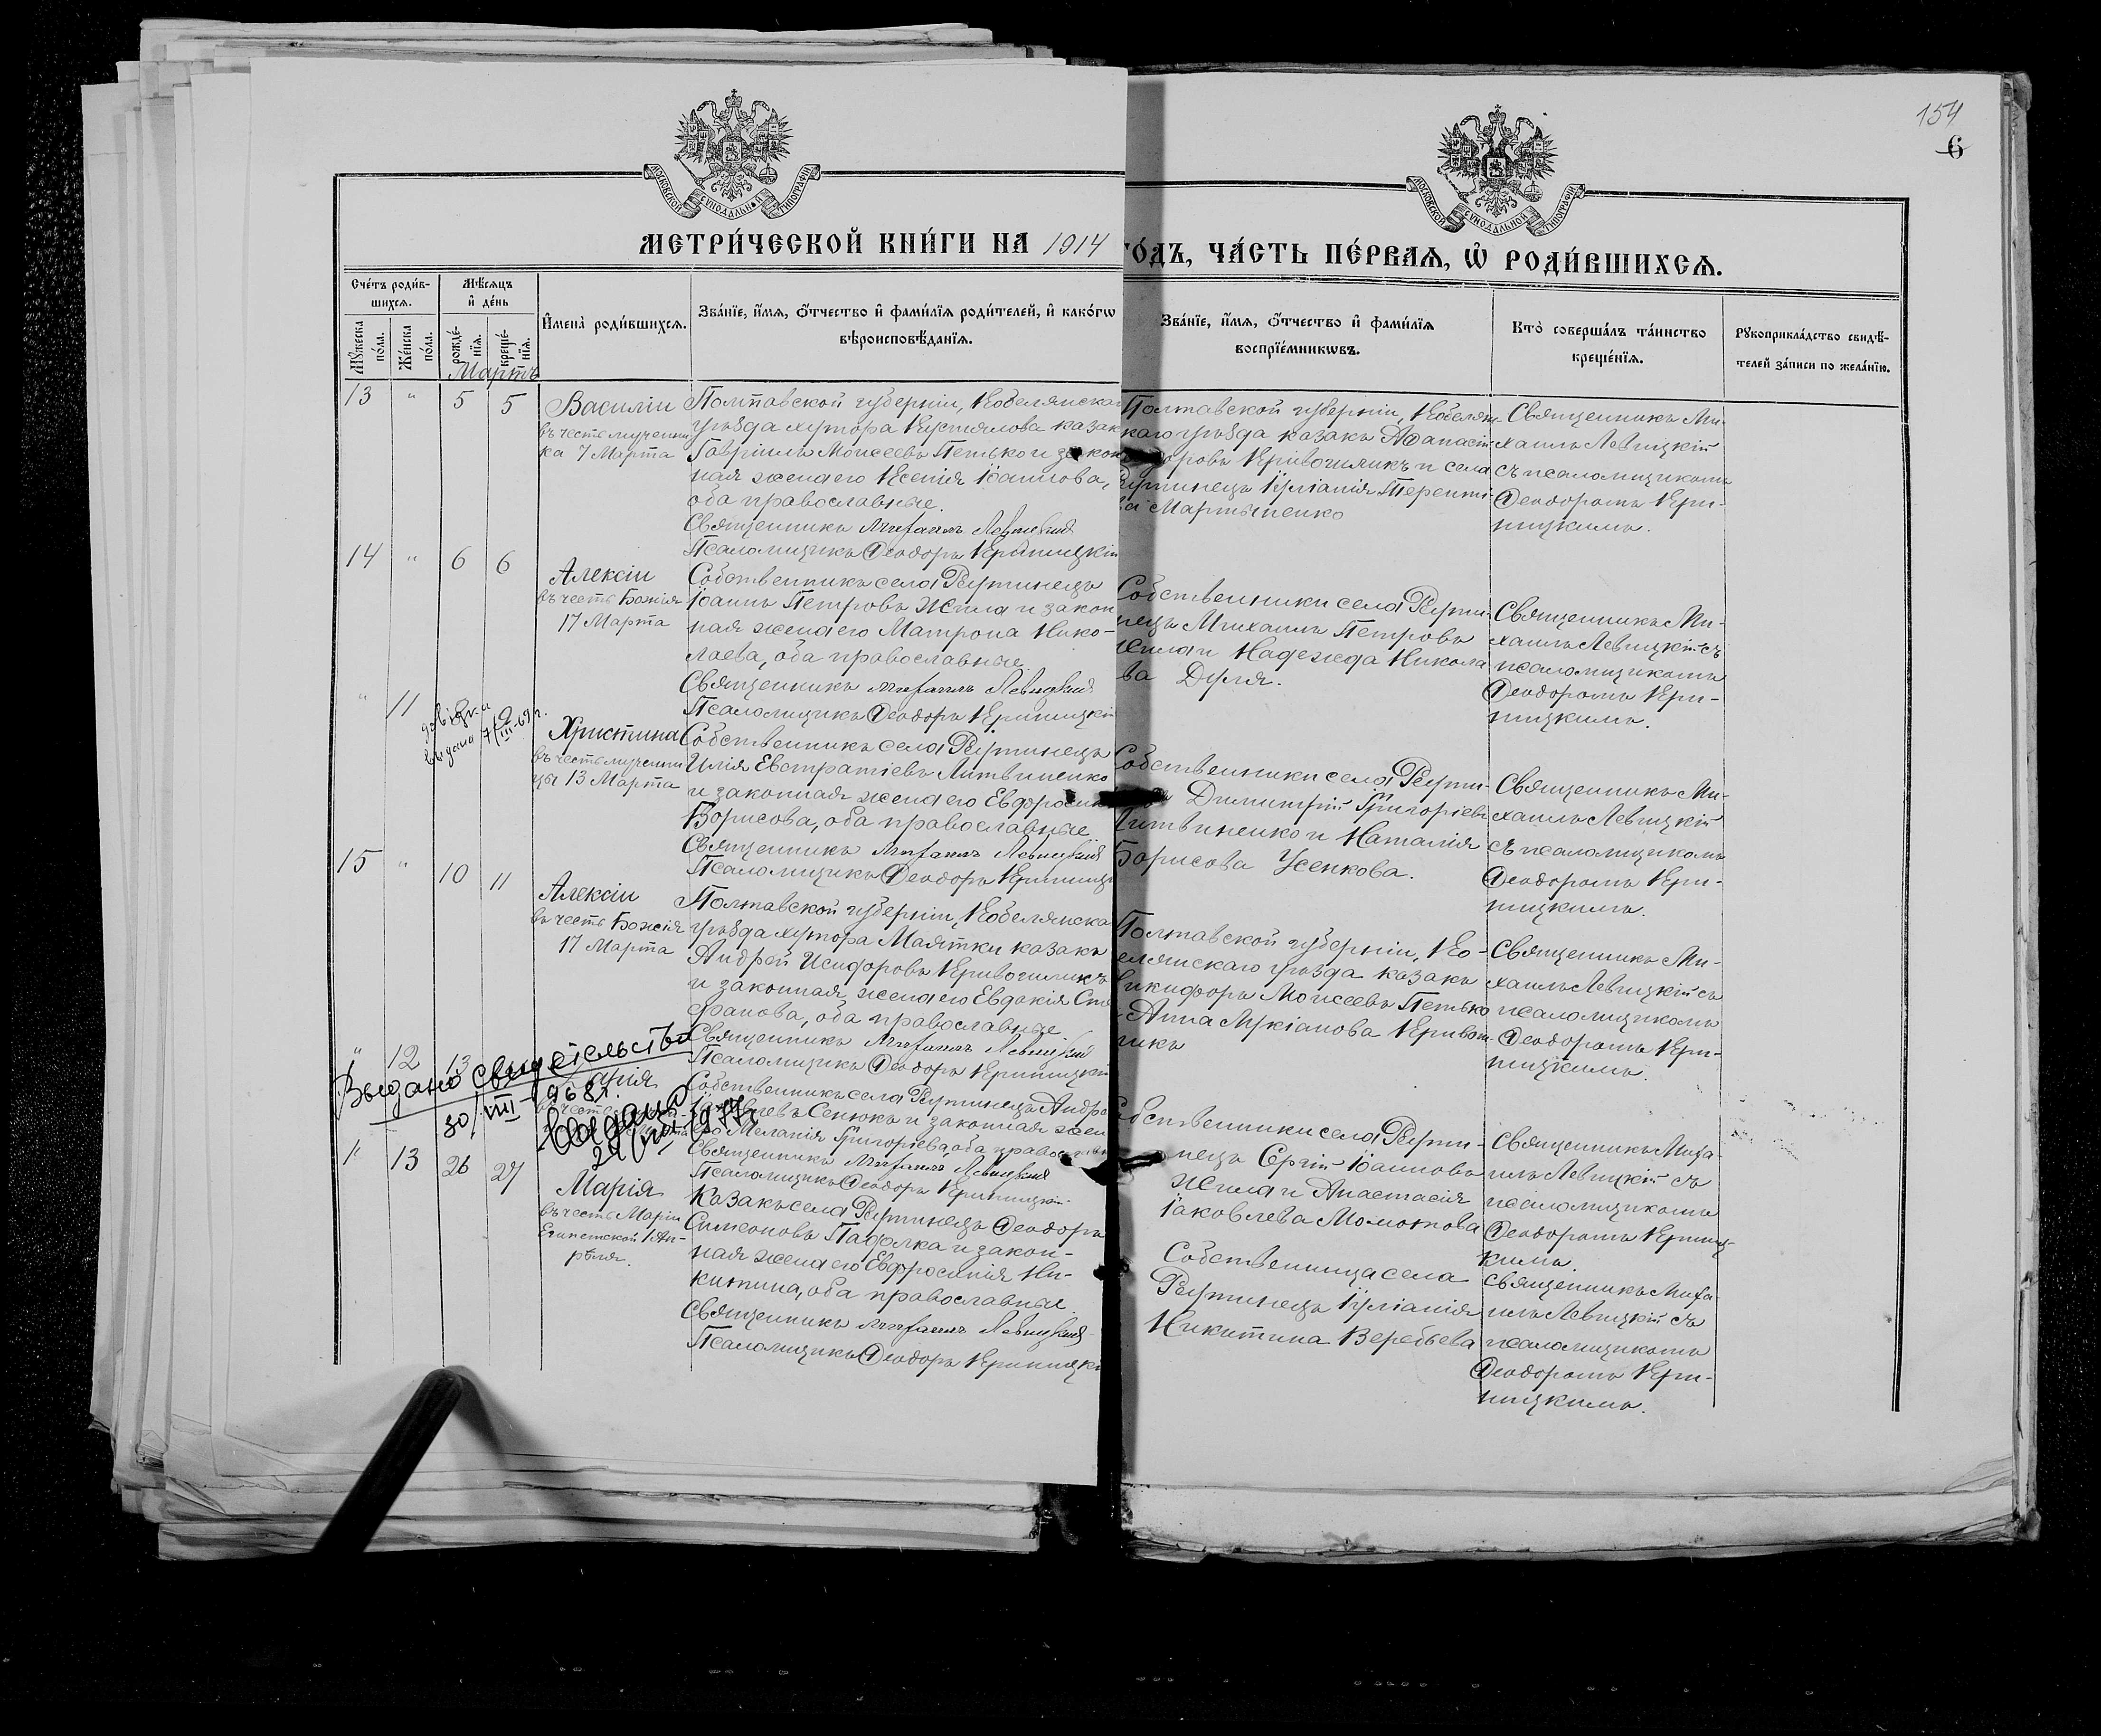 154
6
МОСКОВСКОЙ СѴНОДАЛЬНОЙ ТИПОГРАФІИ
МОСКОВСКОЙ СѴНОДАЛЬНОЙ ТИПОГРАФІИ
МЕТРИ́ЧЕСКОЙ КНИ́ГИ НА 1914
ГО́ДЪ, ЧА́СТЬ ПЕ́РВАѦ, Ѡ҆ РОДИ́ВШИХСѦ.
Сче́тъ роди́в-
шихсѧ.
Мꙋ́жеска по́ла.
Же́нска по́ла.
Мѣ́сѧцъ
и҆ де́нь
рожде́-
нїѧ.
креще́-
нїѧ.
Мартъ
И҆мена̀ роди́вшихсѧ.
Зва́нїе, и҆́мѧ, ѻ҆́тчество и҆ фами́лїѧ роди́телей, и҆ како́гѡ
вѣроисповѣ́данїѧ.
Зва́нїе, и҆́мѧ, ѻ҆́тчество и҆ фами́лїѧ
воспрїе́мникѡвъ.
Кто̀ соверша́лъ та́инство
креще́нїѧ.
Рꙋкоприкла́дство свидѣ́-
телей за́писи по жела́нїю.
13 " 5 5
Василій
въ честь мученни
ка 7 Марта
Полтавской губерніи, Кобелянска
уѣзда хутора казак
Гавріилъ Моисеевъ Петько и закон
ная жена его Ксенія Іоаннова,
оба православные.
Священникъ Михаилъ Левицкій
Псаломщикъ Ѳеодоръ Криницкій
Полтавской губерніи, Кобелян-
каго уѣзда казакъ Аѳанасій
доровъ Кривочикъ и села
Іуліанія Теренті-
ва Мартыненко
Священникъ Ми-
хаилъ Левицкій
съ псаломщикомъ
Ѳеодоромъ Кри-
ницкимъ.
14 " 6 6
Алексій
въ честь Божія
17 Марта
Собственникъ села Реутинецъ
Іоаннъ Петровъ Жила и закон
ная жена его Матрона Нико-
лаева, оба православные.
Священникъ Михаилъ Левицкій
Псаломщикъ Ѳеодоръ Криницкій
Собственники села Реути-
нецъ Михаилъ Петровъ
Жила и Надежда Никола
ва Дуля.
Священникъ Ми-
хаилъ Левицкій съ
псаломщикомъ
Ѳеодоромъ Кри-
ницкимъ.
" 11
довідка
видана 7/III-69 г.
Христина
въ честь мученни
цы 13 Марта
Собственникъ села Реутинецъ
Илія Евстратіевъ Литвиненко
и законная жена его Евфросин
Борисова, оба православные.
Священникъ Михаилъ Левицкій
Псаломщикъ Ѳеодоръ Криницк
Собственники села Реути-
Димитрій Григоріевъ
Литвиненко и Наталія
Борисова Усенкова.
Священникъ Ми-
хаилъ Левицкій
съ псаломщикомъ
Ѳеодоромъ Кри-
ницкимъ.
15 " 10 11
Алексій
въ честь Божія
17 Марта
Полтавской губерніи, Кобелянска
уѣзда хутора Маятки казакъ
Андрей Исидоровъ Кривочикъ
и законная жена его Евдокія Сте
фанова, оба православные.
Священникъ Михаилъ Левицкій
Псаломщикъ Ѳеодоръ Криницкій
Полтавской губерніи, Ко-
белянскаго уѣзда казакъ
Никифоръ Моисеевъ Петько
Анна Лукіанова Кривочи-
Священникъ Ми-
хаилъ Левицкій съ
псаломщикомъ
Ѳеодоромъ Кри-
ницкимъ.
" 12 13
Выдано свидетельство
30/VIII-1968г.
Марія
Выдано
Собственникъ села Реутинецъ Андре
Сенюкъ и законная жен
его Меланія Григоріева, оба православн
Священникъ Михаилъ Левицкій
Псаломщикъ Ѳеодоръ Криницкій
Собственники села Реути-
нецъ Сергій Іоанновъ
Жила и Анастасія
Іаковлева Момотова
Священникъ Миха
илъ Левицкій съ
псаломщикомъ
Ѳеодоромъ Криниц
кимъ.
" 13 26 27
Марія
въ честь Маріи
Египетской 1 Ап-
рѣля.
Казакъ села Реутинецъ Ѳеодоръ
Симеоновъ Падолка и закон-
ная жена его Евфросинія Ни-
китина, оба православные.
Священникъ Михаилъ Левицкій
Псаломщикъ Ѳеодоръ Криницкі
Собственница села
Реутинецъ Іуліанія
Никитина Веребьева
Священникъ Миха
илъ Левицкій съ
псаломщикомъ
Ѳеодоромъ Кри-
ницкимъ.